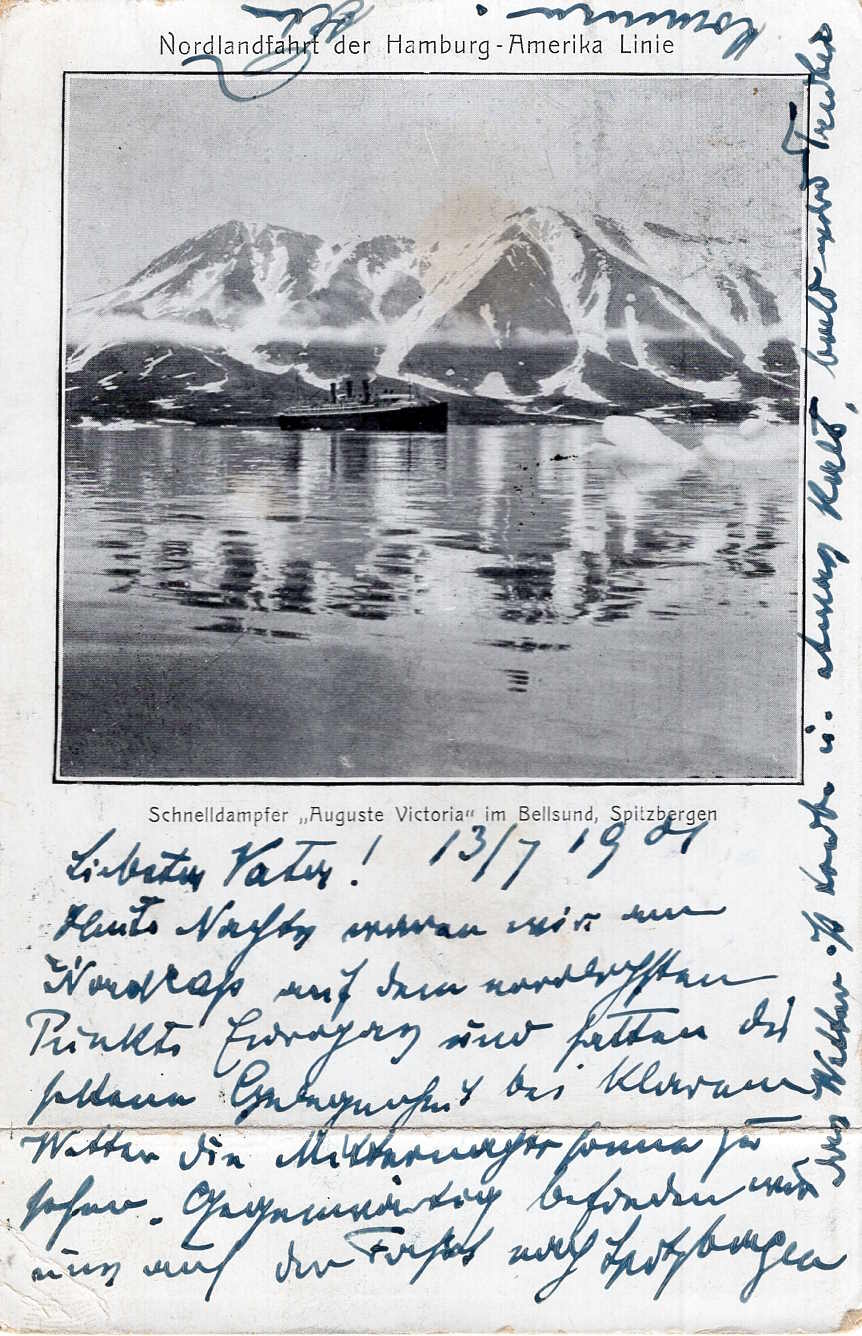 Nordlandfahrt der Hamburg-Amerika Linie
Schnelldampfer „Auguste Victoria" im Bellsund, Spitzbergen
Liebster Vater! 13/7 1901
Heute Nacht waren wir am
Nordkap auf dem nördlichsten
Punkte Europas und hatten die
seltene Gelegenheit bei klarem
Wetter die Mitternachtssonne zu
sehen. Gegenwärtig befinden wir
uns auf der Fahrt nach Spitzbergen
das Wetter ist heute u. etwas kalt, bald
kommen